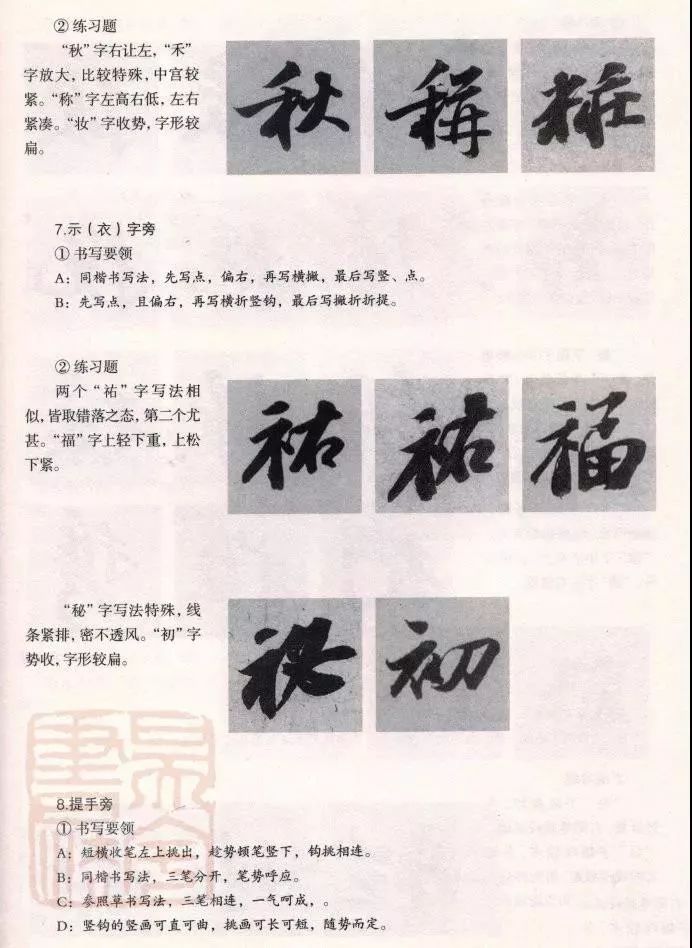 ② 练习题
“秋”字右让左，“禾”
字放大，比较特殊，中宫较
紧。“称”字左高右低，左右
紧凑。“妆”字收势，字形较
扁。
秋 稱 粧
7.示（衣）字旁
① 书写要领
A：同楷书写法，先写点，偏右，再写横撇，最后写竖、点。
B：先写点，且偏右，再写横折竖钩，最后写撇折折提。
② 练习题
两个“祐”字写法相
似，皆取错落之态，第二个尤
甚。“福”字上轻下重，上松
下紧。
祐 祐 福
“秘”字写法特殊，线
条紧排，密不透风。“初”字
势收，字形较扁。
秘 初
8.提手旁
① 书写要领
A：短横收笔左上挑出，趁势顿笔竖下，钩挑相连。
B：同楷书写法，三笔分开，笔势呼应。
C：参照草书写法，三笔相连，一气呵成，。
D：竖钩的竖画可直可曲，挑画可长可短，随势而定。